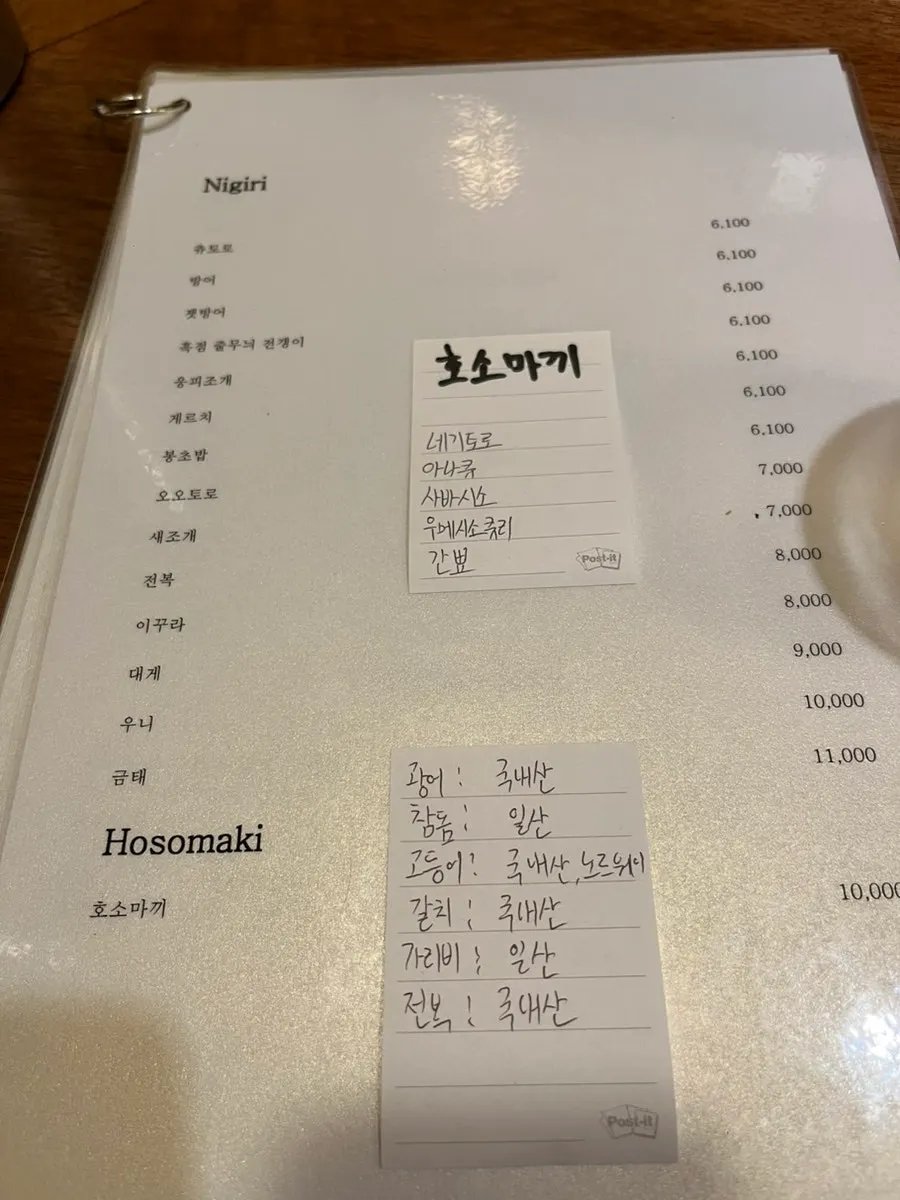 Nigiri
츄토로 6,100
방어 6,100
잿방어 6,100
흑점 줄무늬 전갱이 6,100
웅피조개 6,100
게르치 6,100
봉초밥 6,100
오오토로 7,000
새조개 7,000
전복 8,000
이꾸라 8,000
대게 9,000
우니 10,000
금태 11,000
호소마끼
네기도로
아나큐
사바시소
우메시소큐리
간뾰
Post-it
Hosomaki
호소마끼 10,000
광어 : 국내산
참돔 : 일산
고등어 : 국내산, 노르웨이
갈치 : 국내산
가리비 : 일산
전복 : 국내산
Post-it